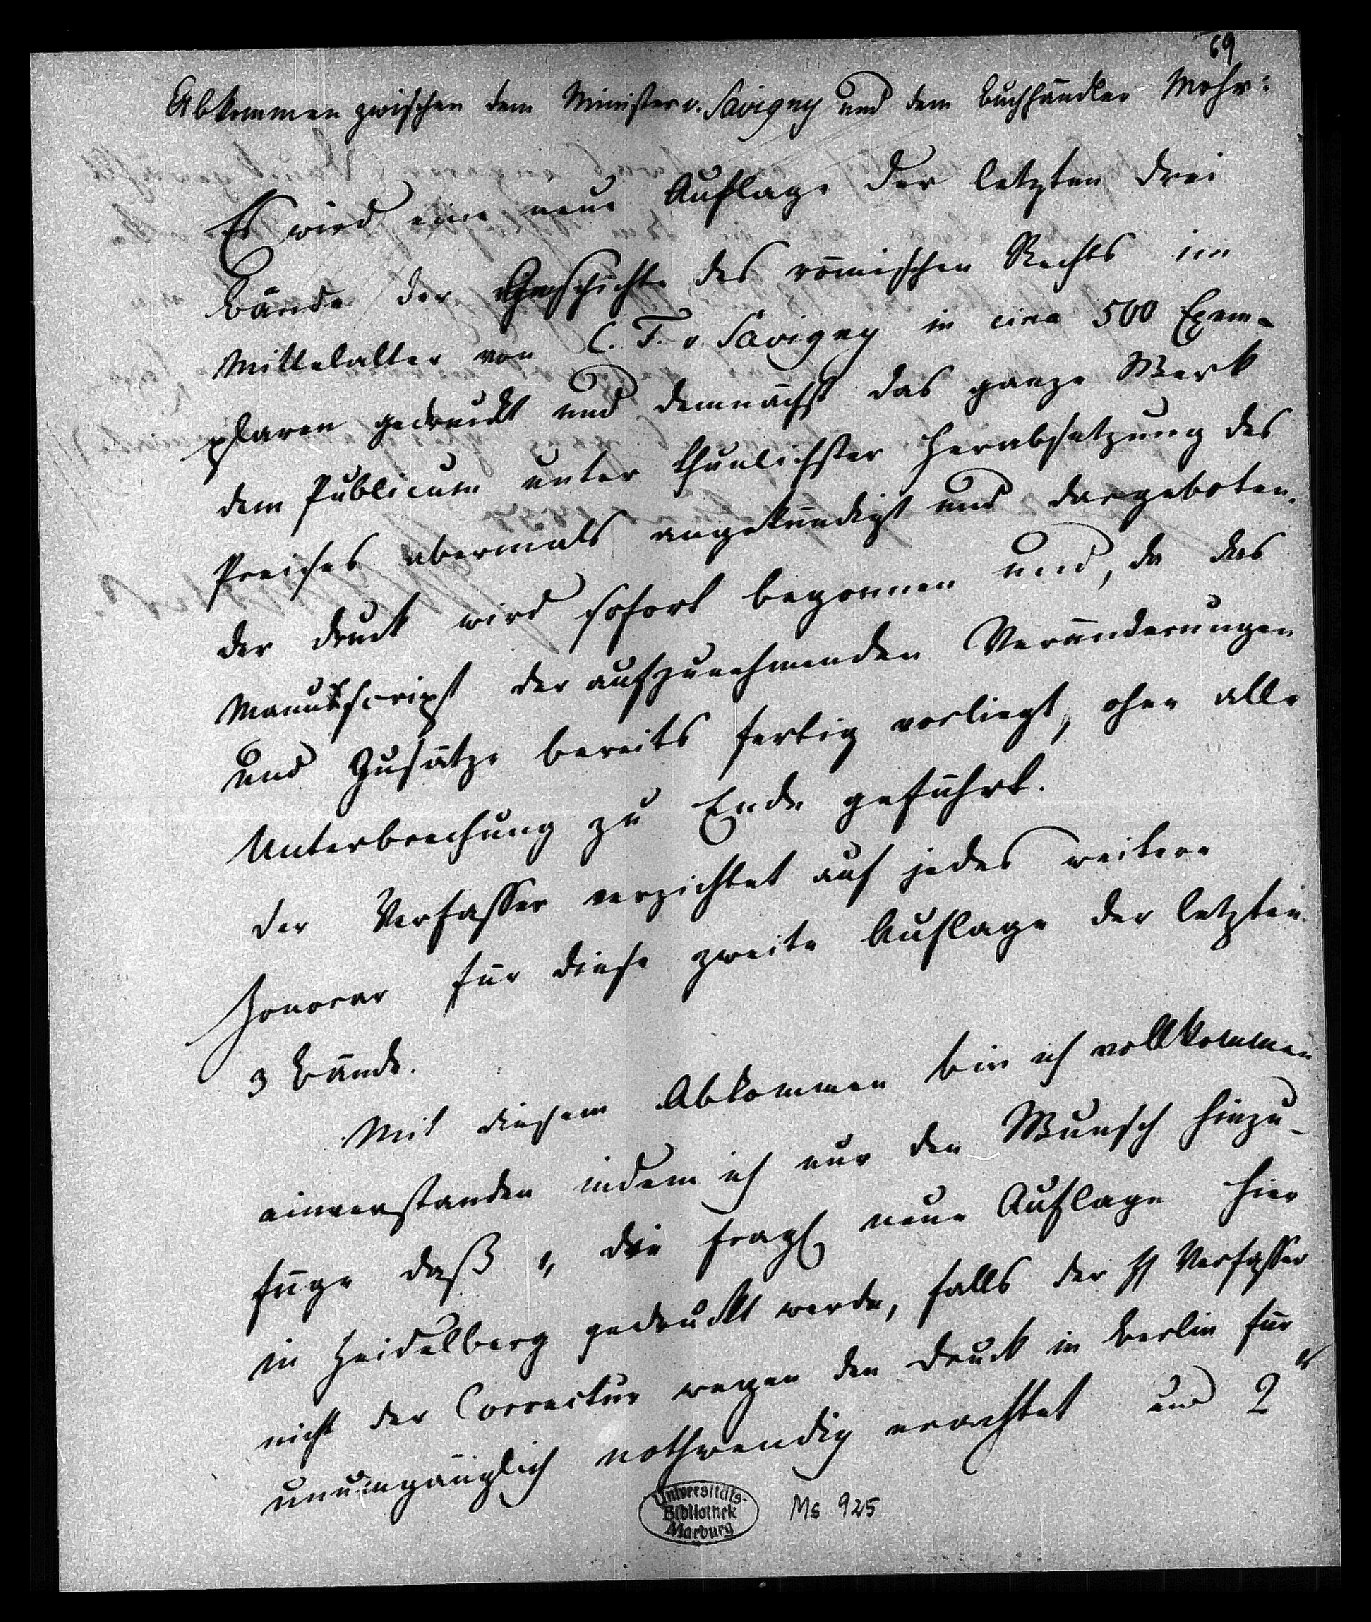 69
Abkommen zwischen dem Minister v. Savigny und dem Buchhändler Mohr:
Es wird eine neue Auflage der letzten drei
Bände der Geschichte des römischen Rechts im
Mittelalter von C. F. v Savigny in circa 500 Exem-
plaren gedruckt und demnächst das ganze Werk
dem Publicum unter thunlichster Herabsetzung des
Preises abermals angekündigt und dargeboten.
Der Druck wird sofort begonnen und, da das
Manuskript der aufzunehmenden Veränderungen
und Zusätze bereits fertig vorliegt, ohne alle
Unterbrechung zu Ende geführt.
Der Verfasser verzichtet auf jedes weitere
Honorar für diese zweite Auflage der letzten
3 Bände.
Mit diesem Abkommen bin ich vollkommen
einverstanden indem ich nur den Wunsch hinzu-
füge daß 1, die fragl neue Auflage hier
in Heidelberg gedruckt werde, falls der H Verfasser
nicht der Correctur wegen den Druck in Berlin für
unumgänglich nothwendig erachtet und 2
Universitäts-
Bibliothek
Marburg
Ms 925